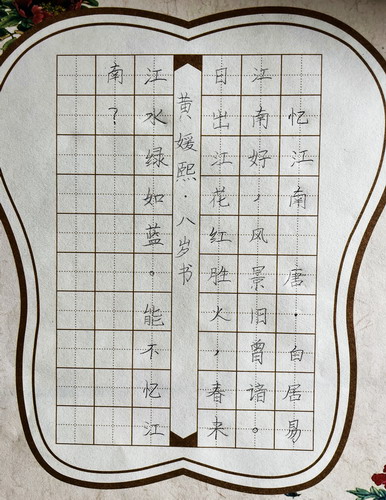 忆江南 唐·白居易
江南好，风景旧曾谙。
日出江花红胜火，春来
江水绿如蓝。能不忆江
南？
黄媛熙·八岁书